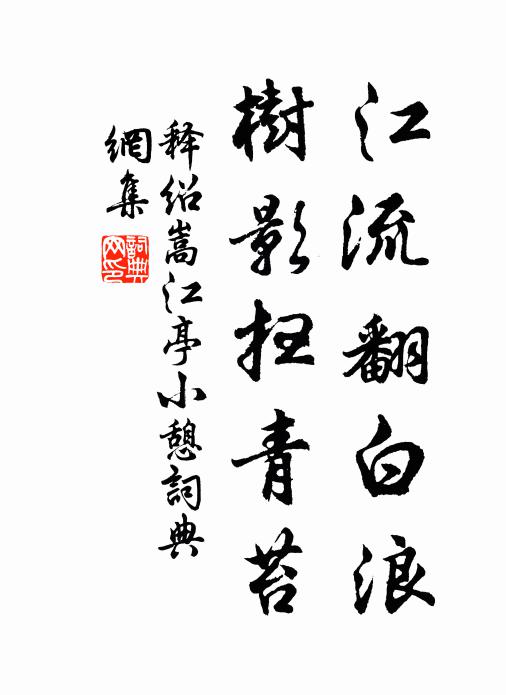 江流翻白浪
樹影扫青苔
释绍嵩江亭小憩詞典
網集
詞典網印